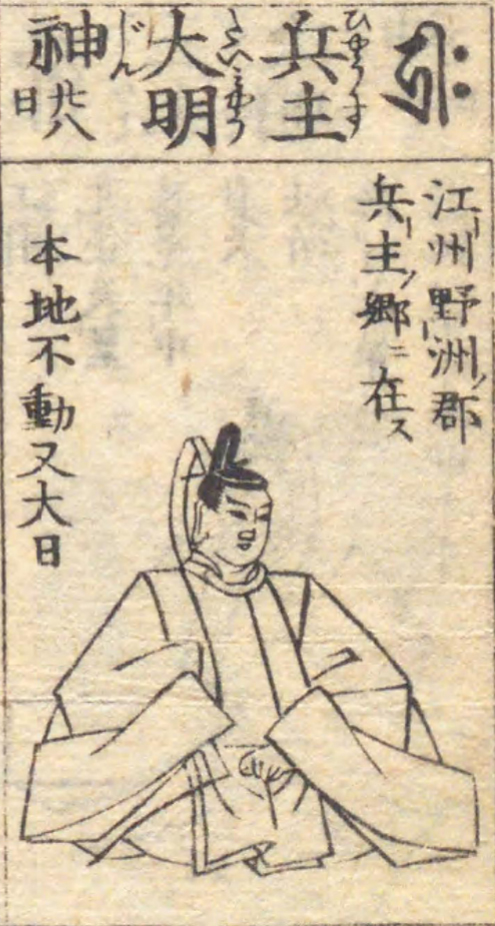 兵主
ひやうす
大明
たいみやう
神
じん
廿八
日
江州野洲郡
兵主郷ニ在ス
本地不動又大日